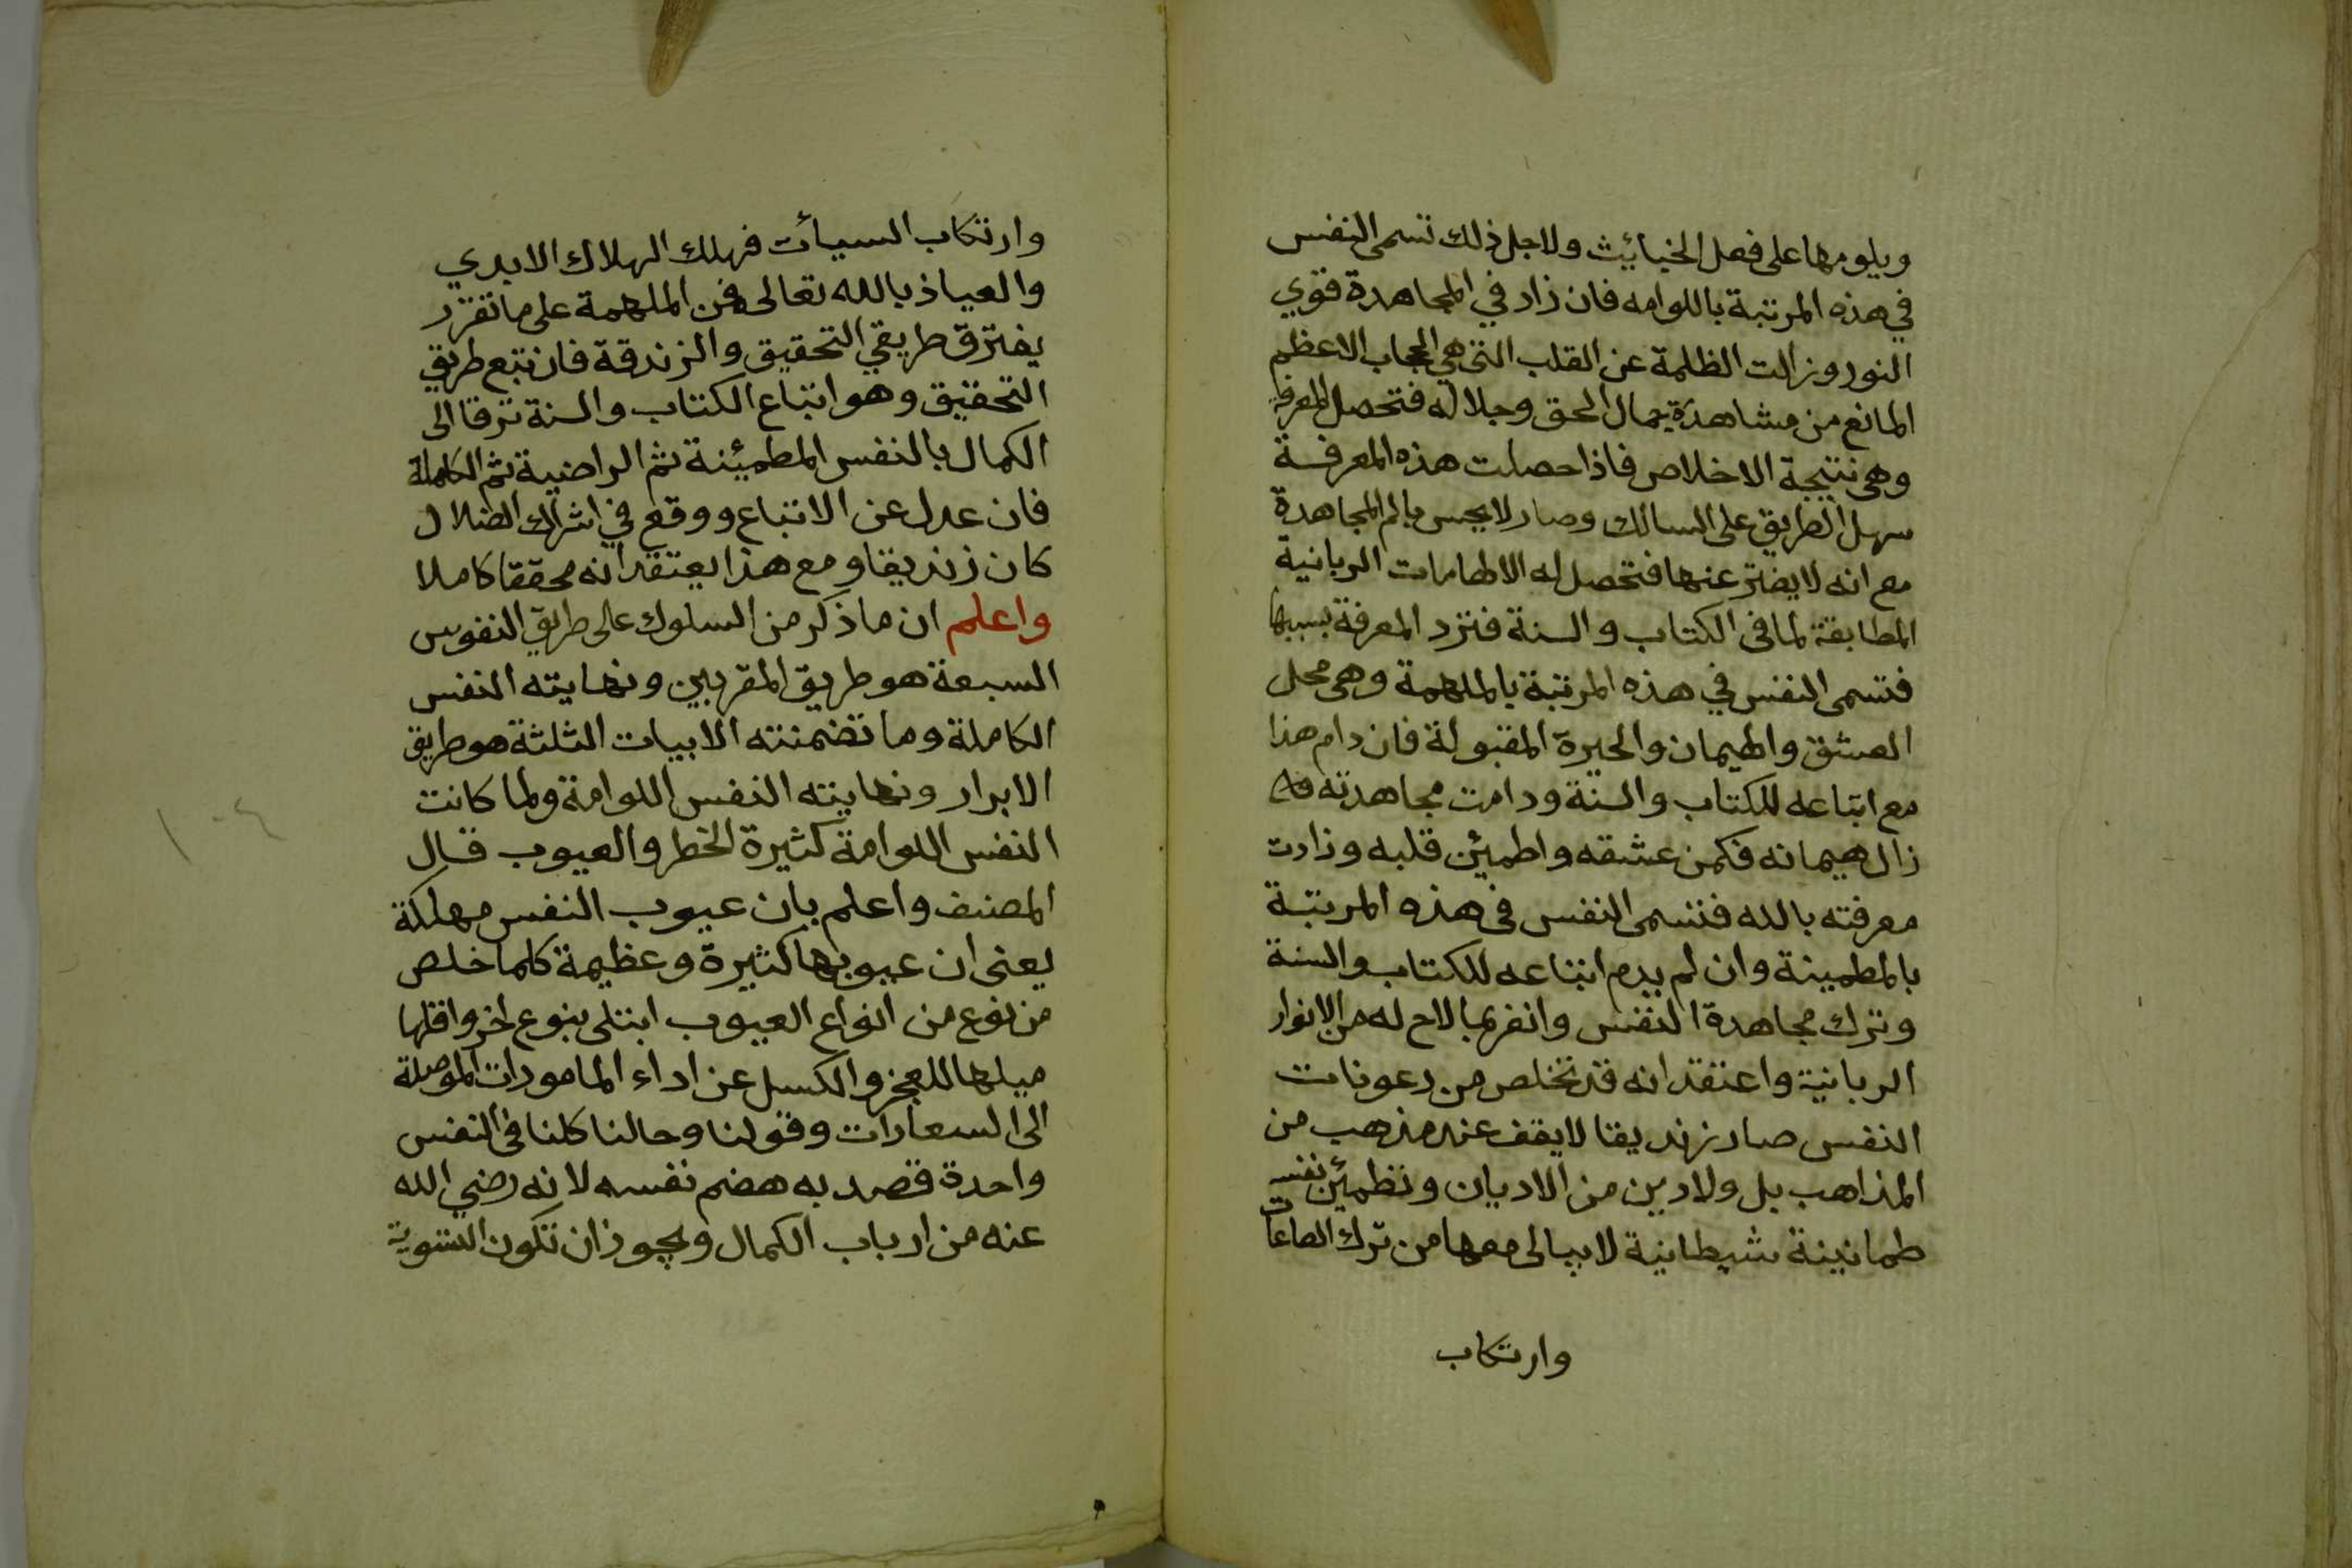 ويلومها على فعل الخبائيث ولاجل ذلك تسمى النفس
في هذه المرتبة باللوامه فان زاد في المجاهدة قوي
النور وزالت الظلمة عن القلب التي هي الحجاب الاعظم
المانع من مشاهدة جمال الحق وجلاله فتحصل المعرفة
وهي نتيجة الاخلاص فاذا حصلت هذه المعرفة
سهل الطريق على السالك وصار لا يحس بالم المجاهدة
مع انه لا يفتر عنها فتحصل له الالهامات الربانية
المطابقة لما في الكتاب والسنة فتزد المعرفة بسببها
فتسمى النفس في هذه المرتبة بالملهمة وهي محل
العشق والهيمان والحيرة المقبولة فان دام هذا
مع اتباعه للكتاب والسنة ودامت مجاهدته
زال هيمانه فكمن عشقه واطمئن قلبه وزادت
معرفته بالله فتسمى النفس في هذه المرتبة
بالمطمينة وان لم يدم اتباعه للكتاب والسنة
وترك مجاهدة النفس وانغر بما لاح له من الانوار
الربانية واعتقد انه قد تخلص من رعونات
النفس صار زنديقا لا يقف عند مذهب من
المذاهب بل ولا دين من الاديان وتطمئن نفسه
طمانينة شيطانية لا يبالى معها من ترك الطاعات
وارتكاب
وارتكاب السيأت فهلك الهلاك الابدي
والعياذ بالله تعالى فمن الملهمة على ما تقرر
يفترق طريقي التحقيق والزندقة فان تبع طريق
التحقيق وهو اتباع الكتاب والسنة ترقا الى
الكمال بالنفس المطمئينة ثم الراضية ثم الكاملة
فان عدل عن الاتباع ووقع في اشراك الضلال
كان زنديقا ومع هذا يعتقد انه محققا كاملا
واعلم ان ما ذكر من السلوك على طريق النفوس
السبعة هو طريق المقربين ونهايته النفس
الكاملة وما تضمنته الابيات الثلثة هو طريق
الابرار ونهايته النفس اللوامة ولما كانت
النفس اللوامة كثيرة الخطر والعيوب قال
المصنف واعلم بان عيوب النفس مهلكة
يعنى ان عيوبها كثيرة وعظيمة كلما خلص
من نوع من انواع العيوب ابتلى بنوع اخر واقلها
ميلها للعجز والكسل عن اداء المامورات الموصلة
الى السعادات وقولنا وحالنا كلنا في النفس
واحدة قصد به هضم نفسه لانه رضي الله
عنه من ارباب الكمال ويجوز ان تكون التسوية
١٠٤